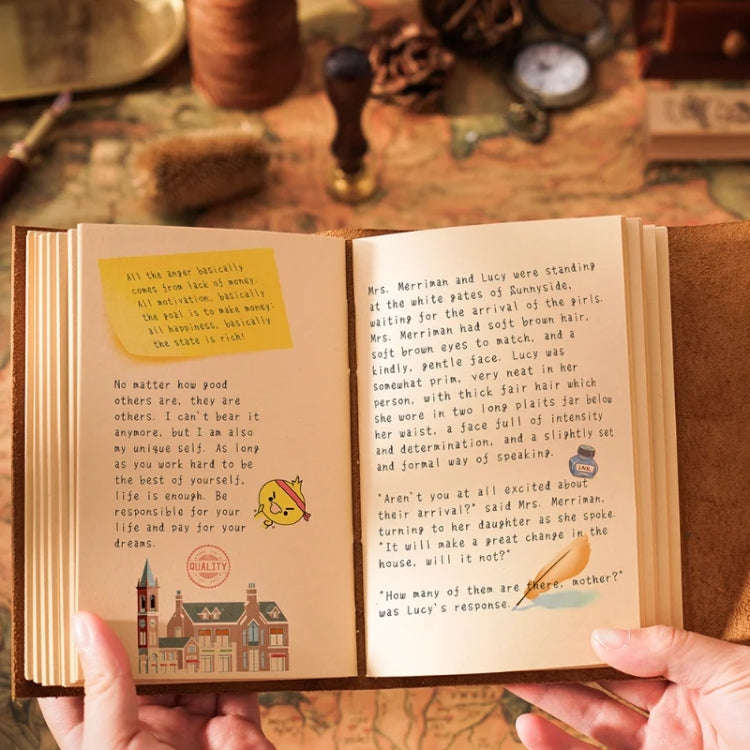 All the anger basically
comes from lack of money.
All motivation, basically
the goal is to make money;
all happiness, basically
the state is rich!
No matter how good
others are, they are
others. I can't bear it
anymore, but I am also
my unique self. As long
as you work hard to be
the best of yourself,
life is enough. Be
responsible for your
life and pay for your
dreams.
QUALITY
Mrs. Merriman and Lucy were standing
at the white gates of Sunnyside,
waiting for the arrival of the girls.
Mrs. Merriman had soft brown hair,
soft brown eyes to match, and a
kindly, gentle face. Lucy was
somewhat prim, very neat in her
person, with thick fair hair which
she wore in two long plaits far below
her waist, a face full of intensity
and determination, and a slightly set
and formal way of speaking.
INK
"Aren't you at all excited about
their arrival?" said Mrs. Merriman,
turning to her daughter as she spoke.
"It will make a great change in the
house, will it not?"
"How many of them are there, mother?"
was Lucy's response.